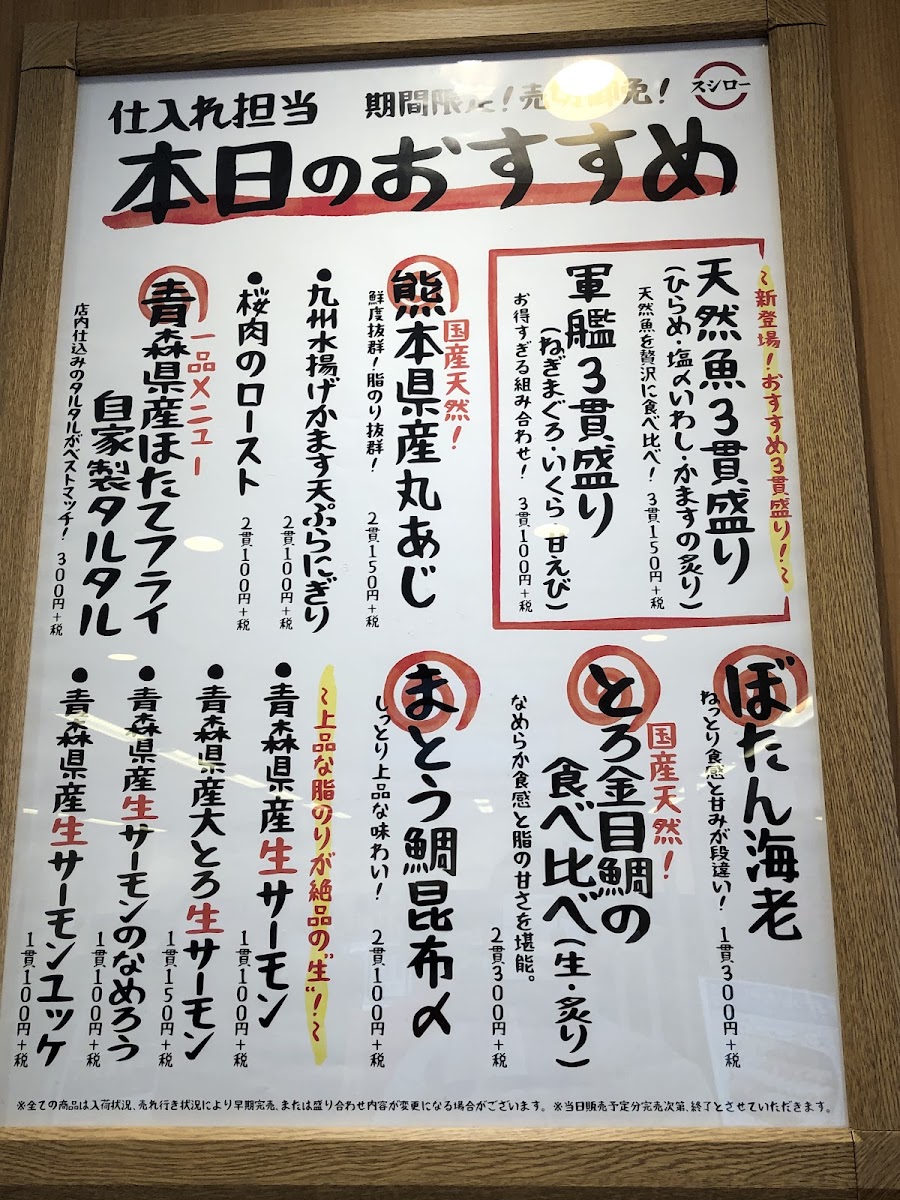 仕入れ担当
期間限定！売切御免！
スシロー
本日のおすすめ
～新登場！おすすめ3貫盛り！～
天然魚3貫盛り
（ひらめ・塩〆いわし・かますの炙り）
天然魚を贅沢に食べ比べ！ 3貫150円+税
軍艦3貫盛り
（ねぎまぐろ・いくら・甘えび）
お得すぎる組み合わせ！ 3貫100円+税
国産天然！
熊本県産丸あじ
鮮度抜群！脂のり抜群！ 2貫150円+税
●九州水揚げかます天ぷらにぎり
2貫100円+税
●桜肉のロースト
2貫100円+税
一品メニュー
青森県産ほたてフライ
自家製タルタル
店内仕込みのタルタルがベストマッチ！ 300円+税
ぼたん海老
ねっとり食感と甘みが段違い！ 1貫300円+税
国産天然！
とろ金目鯛の
食べ比べ（生・炙り）
なめらか食感と脂の甘さを堪能。
2貫300円+税
まとう鯛昆布〆
しっとり上品な味わい！ 2貫100円+税
～上品な脂のりが絶品の“生”！～
●青森県産生サーモン
1貫100円+税
●青森県産大とろ生サーモン
1貫150円+税
●青森県産生サーモンのなめろう
1貫100円+税
●青森県産生サーモンユッケ
1貫100円+税
※全ての商品は入荷状況、売れ行き状況により早期完売、または盛り合わせ内容が変更になる場合がございます。※当日販売予定分完売次第、終了とさせていただきます。